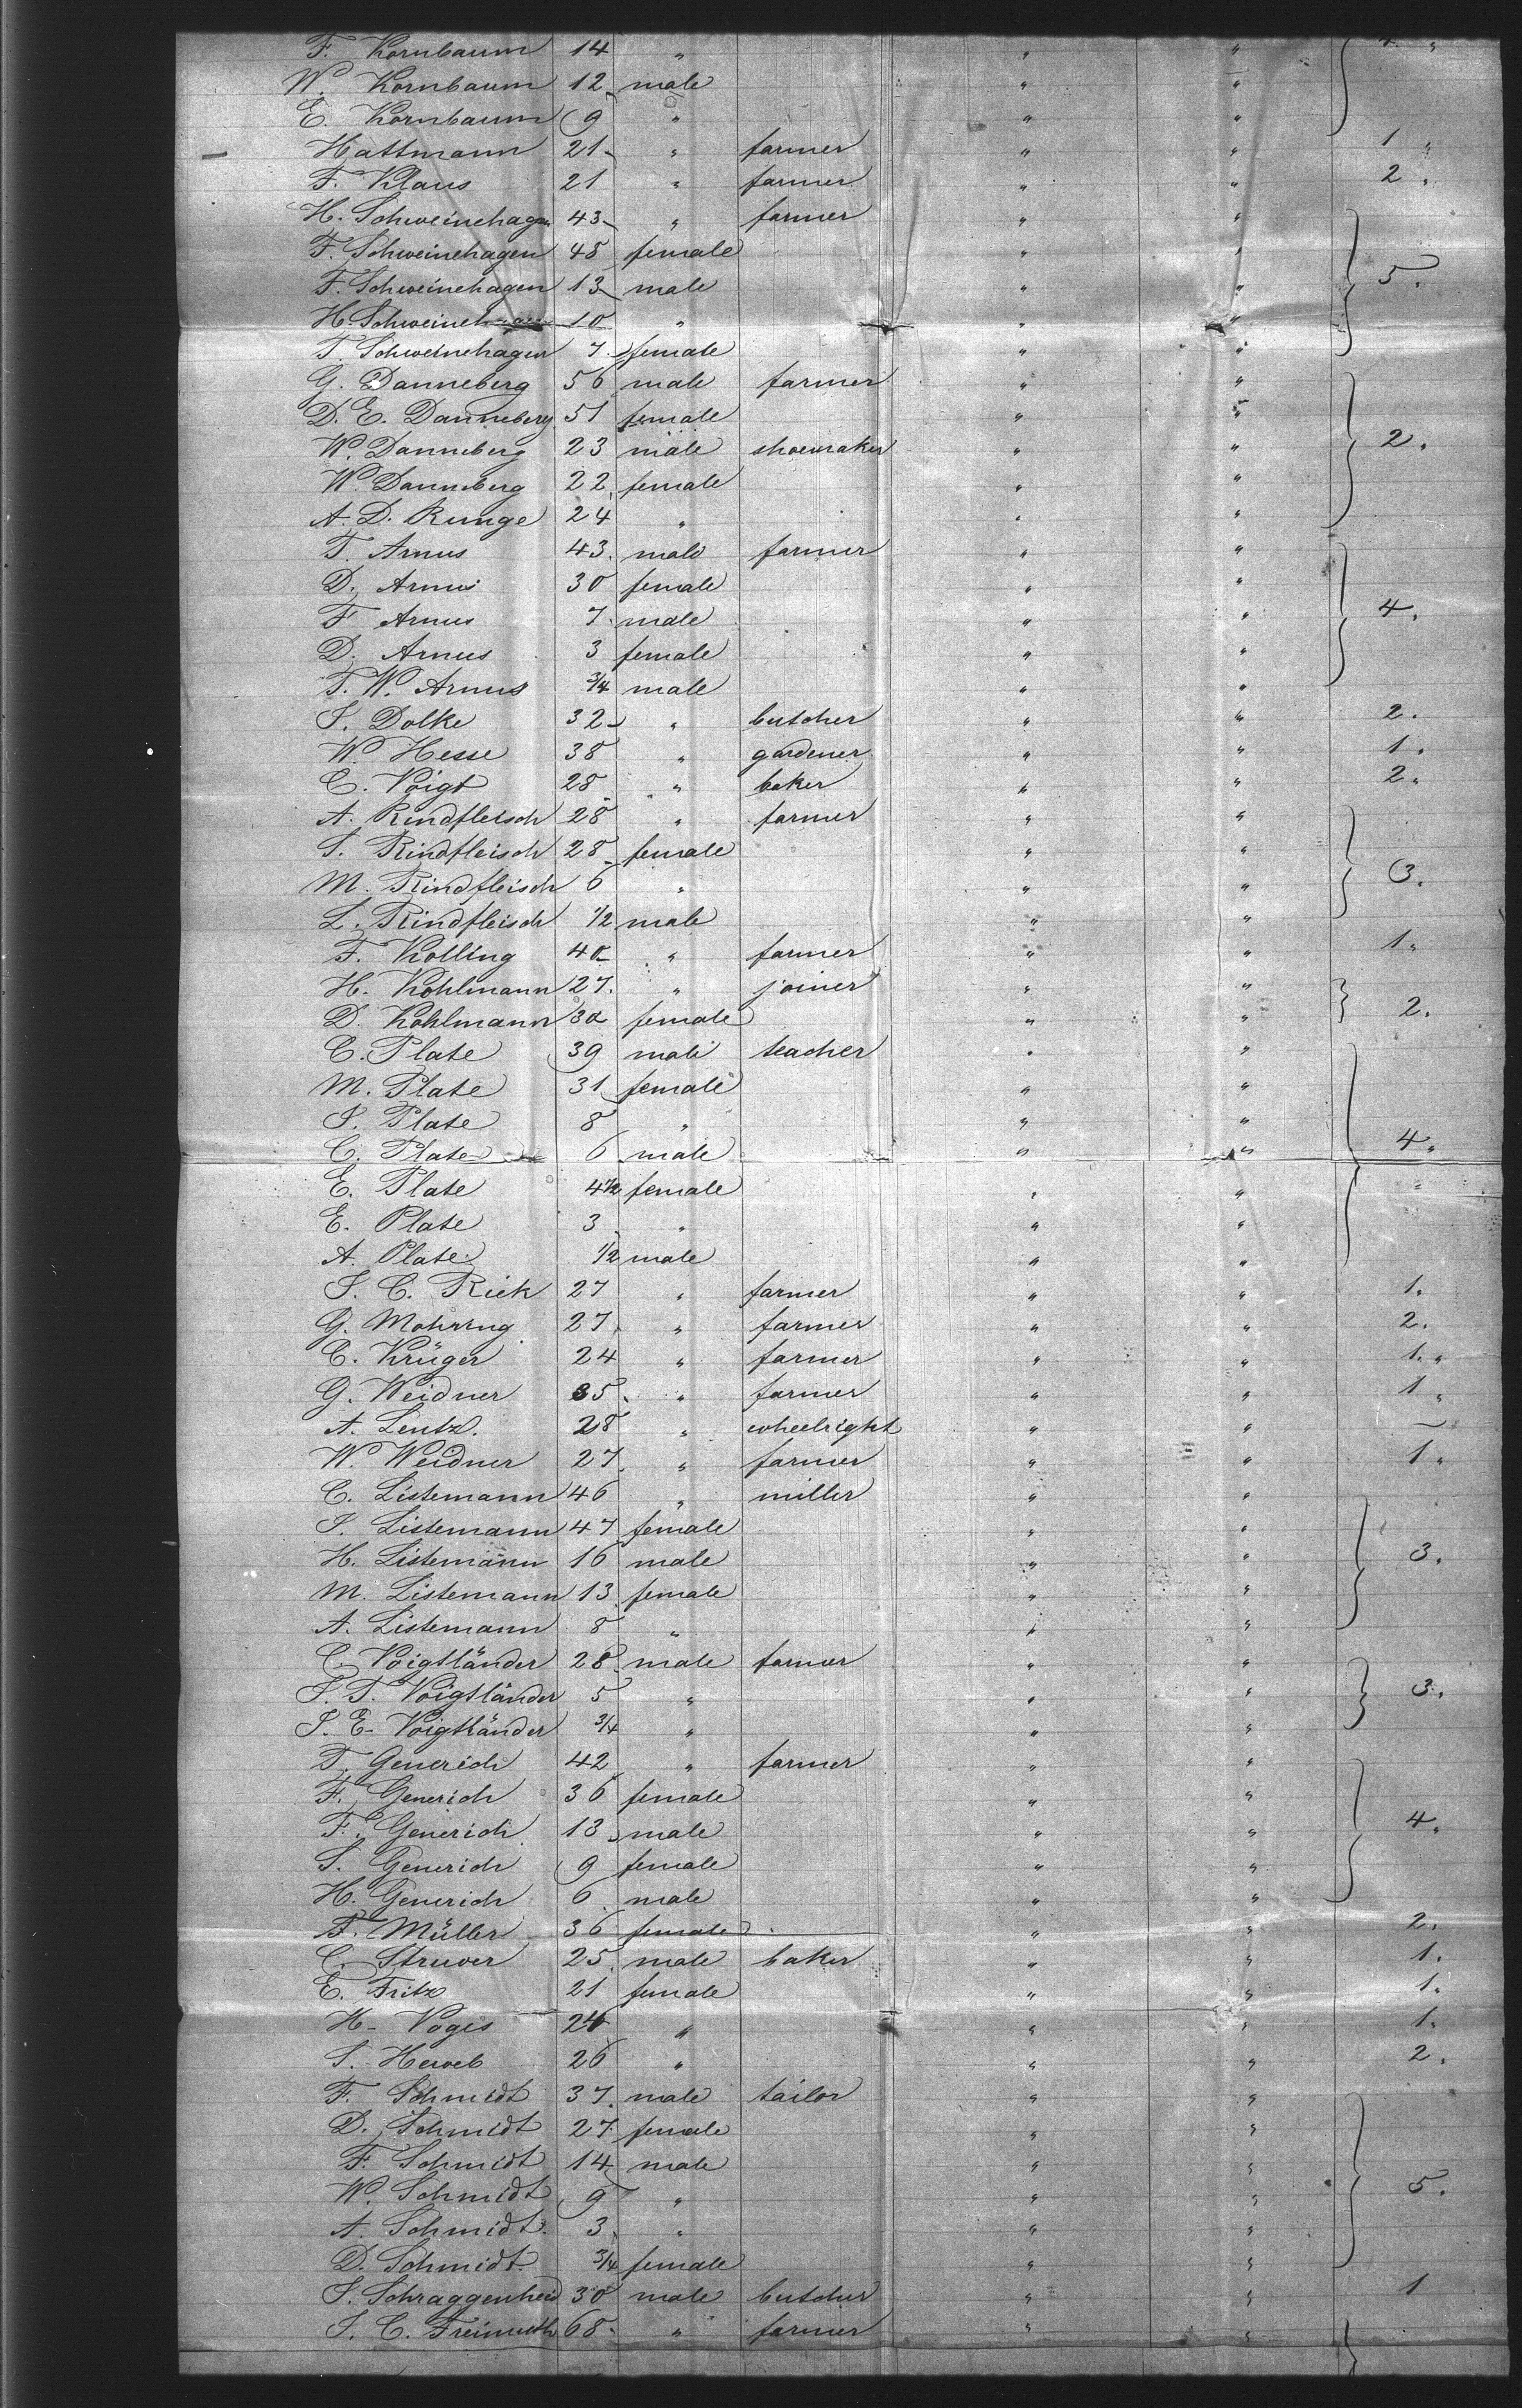 F. Kornbaum 14 " " " 4. "
W. Kornbaum 12 male " "
E. Kornbaum 9 " " "
Hattmann 21 " farmer " " 1 "
F. Klaus 21 " farmer " " 2 "
H. Schweinehagen 43 " farmer " "
F. Schweinehagen 48 female " "
F. Schweinehagen 13 male " " 5.
H. Schweinehagen 10 " " "
T. Schweinehagen 7 female " "
G. Danneberg 56 male farmer " "
D. E. Danneberg 51 female " "
W. Danneberg 23 male shoemaker " " 2.
W. Danneberg 22 female " "
A. D. Runge 24 " " "
T. Arnus 43 male farmer " "
D. Arnus 30 female " "
F. Arnus 7 male " " 4.
D. Arnus 3 female " "
T. W. Arnus 3/4 male " "
S. Dolke 32 " butcher " " 2.
W. Hesse 38 " gardener " " 1.
C. Voigt 28 " baker " " 2.
A. Rindfleisch 28 " farmer " "
S. Rindfleisch 28 female " "
M. Rindfleisch 6 " " " 3.
L. Rindfleisch 1/2 male " "
F. Kolling 40 " farmer " " 1.
H. Kohlmann 27 " joiner " "
D. Kohlmann 30 female " " 2.
C. Plate 39 male teacher " "
M. Plate 31 female " "
S. Plate 8 " " "
C. Plate 6 male " " 4.
E. Plate 4 1/2 female " "
E. Plate 3 " " "
A. Plate 1/2 male " "
S. C. Rick 27 " farmer " " 1.
G. Mohring 27 " farmer " " 2.
C. Krüger 24 " farmer " " 1. "
G. Weidner 35 " farmer " " 1 "
A. Lentz. 28 " wheelright " " —
W. Weidner 27 " farmer " " 1.
C. Listemann 46 " miller " "
S. Listemann 47 female " "
H. Listemann 16 male " " 3.
M. Listemann 13 female " "
A. Listemann 8 " " "
C. Voigtländer 28 male farmer " "
S. T. Voigtländer 5 " " " 3.
S. E. Voigtländer 3/4 " " "
T. Generich 42 " farmer " "
F. Generich 36 female " "
F. Generich 13 male " " 4.
S. Generich 9 female " "
H. Generich 6 male " "
F. Müller 36 female " " 2.
C. Struver 25 male baker " " 1.
E. Fritz 21 female " " 1.
H. Voges 24 " " " 1.
S. 26 " " " 2.
F. Schmidt 37 male tailor " "
D. Schmidt 27 female " "
F. Schmidt 14 male " "
W. Schmidt 9 " " " 5.
A. Schmidt 3 " " "
D. Schmidt 3/4 female " "
S. Schraggenheid 30 male butcher " " 1
S. C. Freimuth 68 " farmer " "